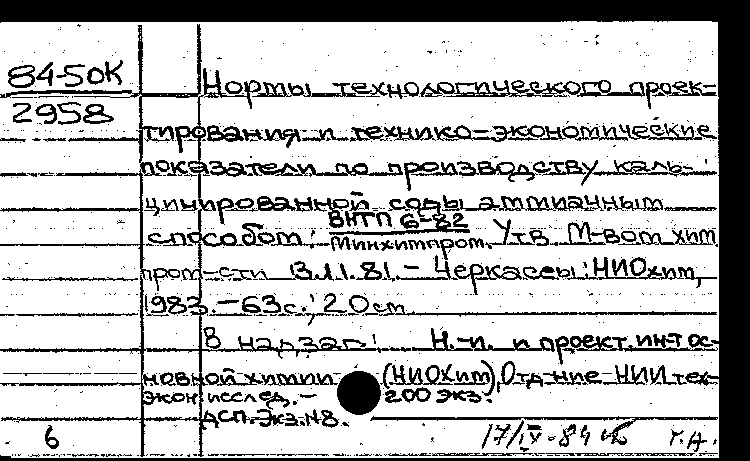 84-50К
2958
Нормы технологического проек-
тирования и технико-экономические
показатели по производству каль-
цинированной соды аммиачным
способом: ВНТП 6-82
Минхимпром. Утв. М-вом хим
пром-сти 13.11.81.- Черкассы: НИОхим,
1983.-63с.; 20см.
В надзаг: Н.-и. и проект. ин-т ос-
новной химии (НИОХим), Отд-ние НИИ тех-
экон. исслед.- 200 экз.
ДСП. Экз. N8.
6 17/IV-84 Г.А.